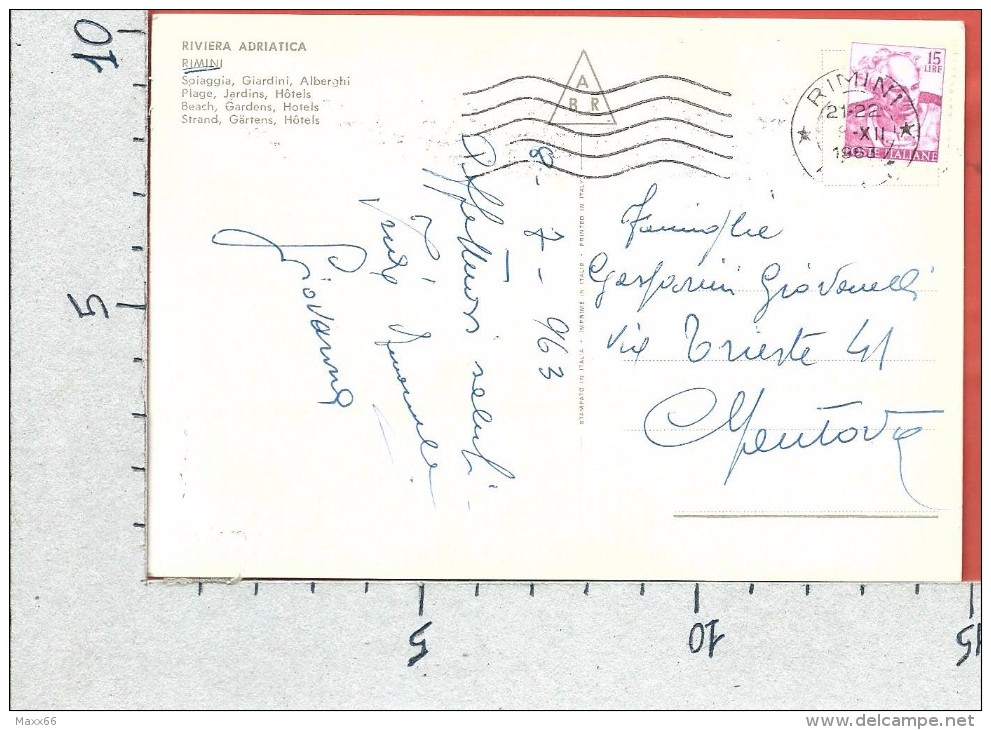 RIVIERA ADRIATICA
RIMINI
Spiaggia, Giardini, Alberghi
Plage, Jardins, Hôtels
Beach, Gardens, Hotels
Strand, Gärtens, Hôtels
A
B R
RIMINI
21-22
-XII
196
15
LIRE
POSTE ITALIANE
8 - 7 - 963
Affettuosi saluti
Giovanna
STAMPATO IN ITALIA - IMPRIMÉ EN ITALIE - PRINTED IN ITALY
Famiglia
Gasparini Giovanelli
Via Trieste 41
Mantova
10
5
5
10
15
Maxx66
delcampe.net